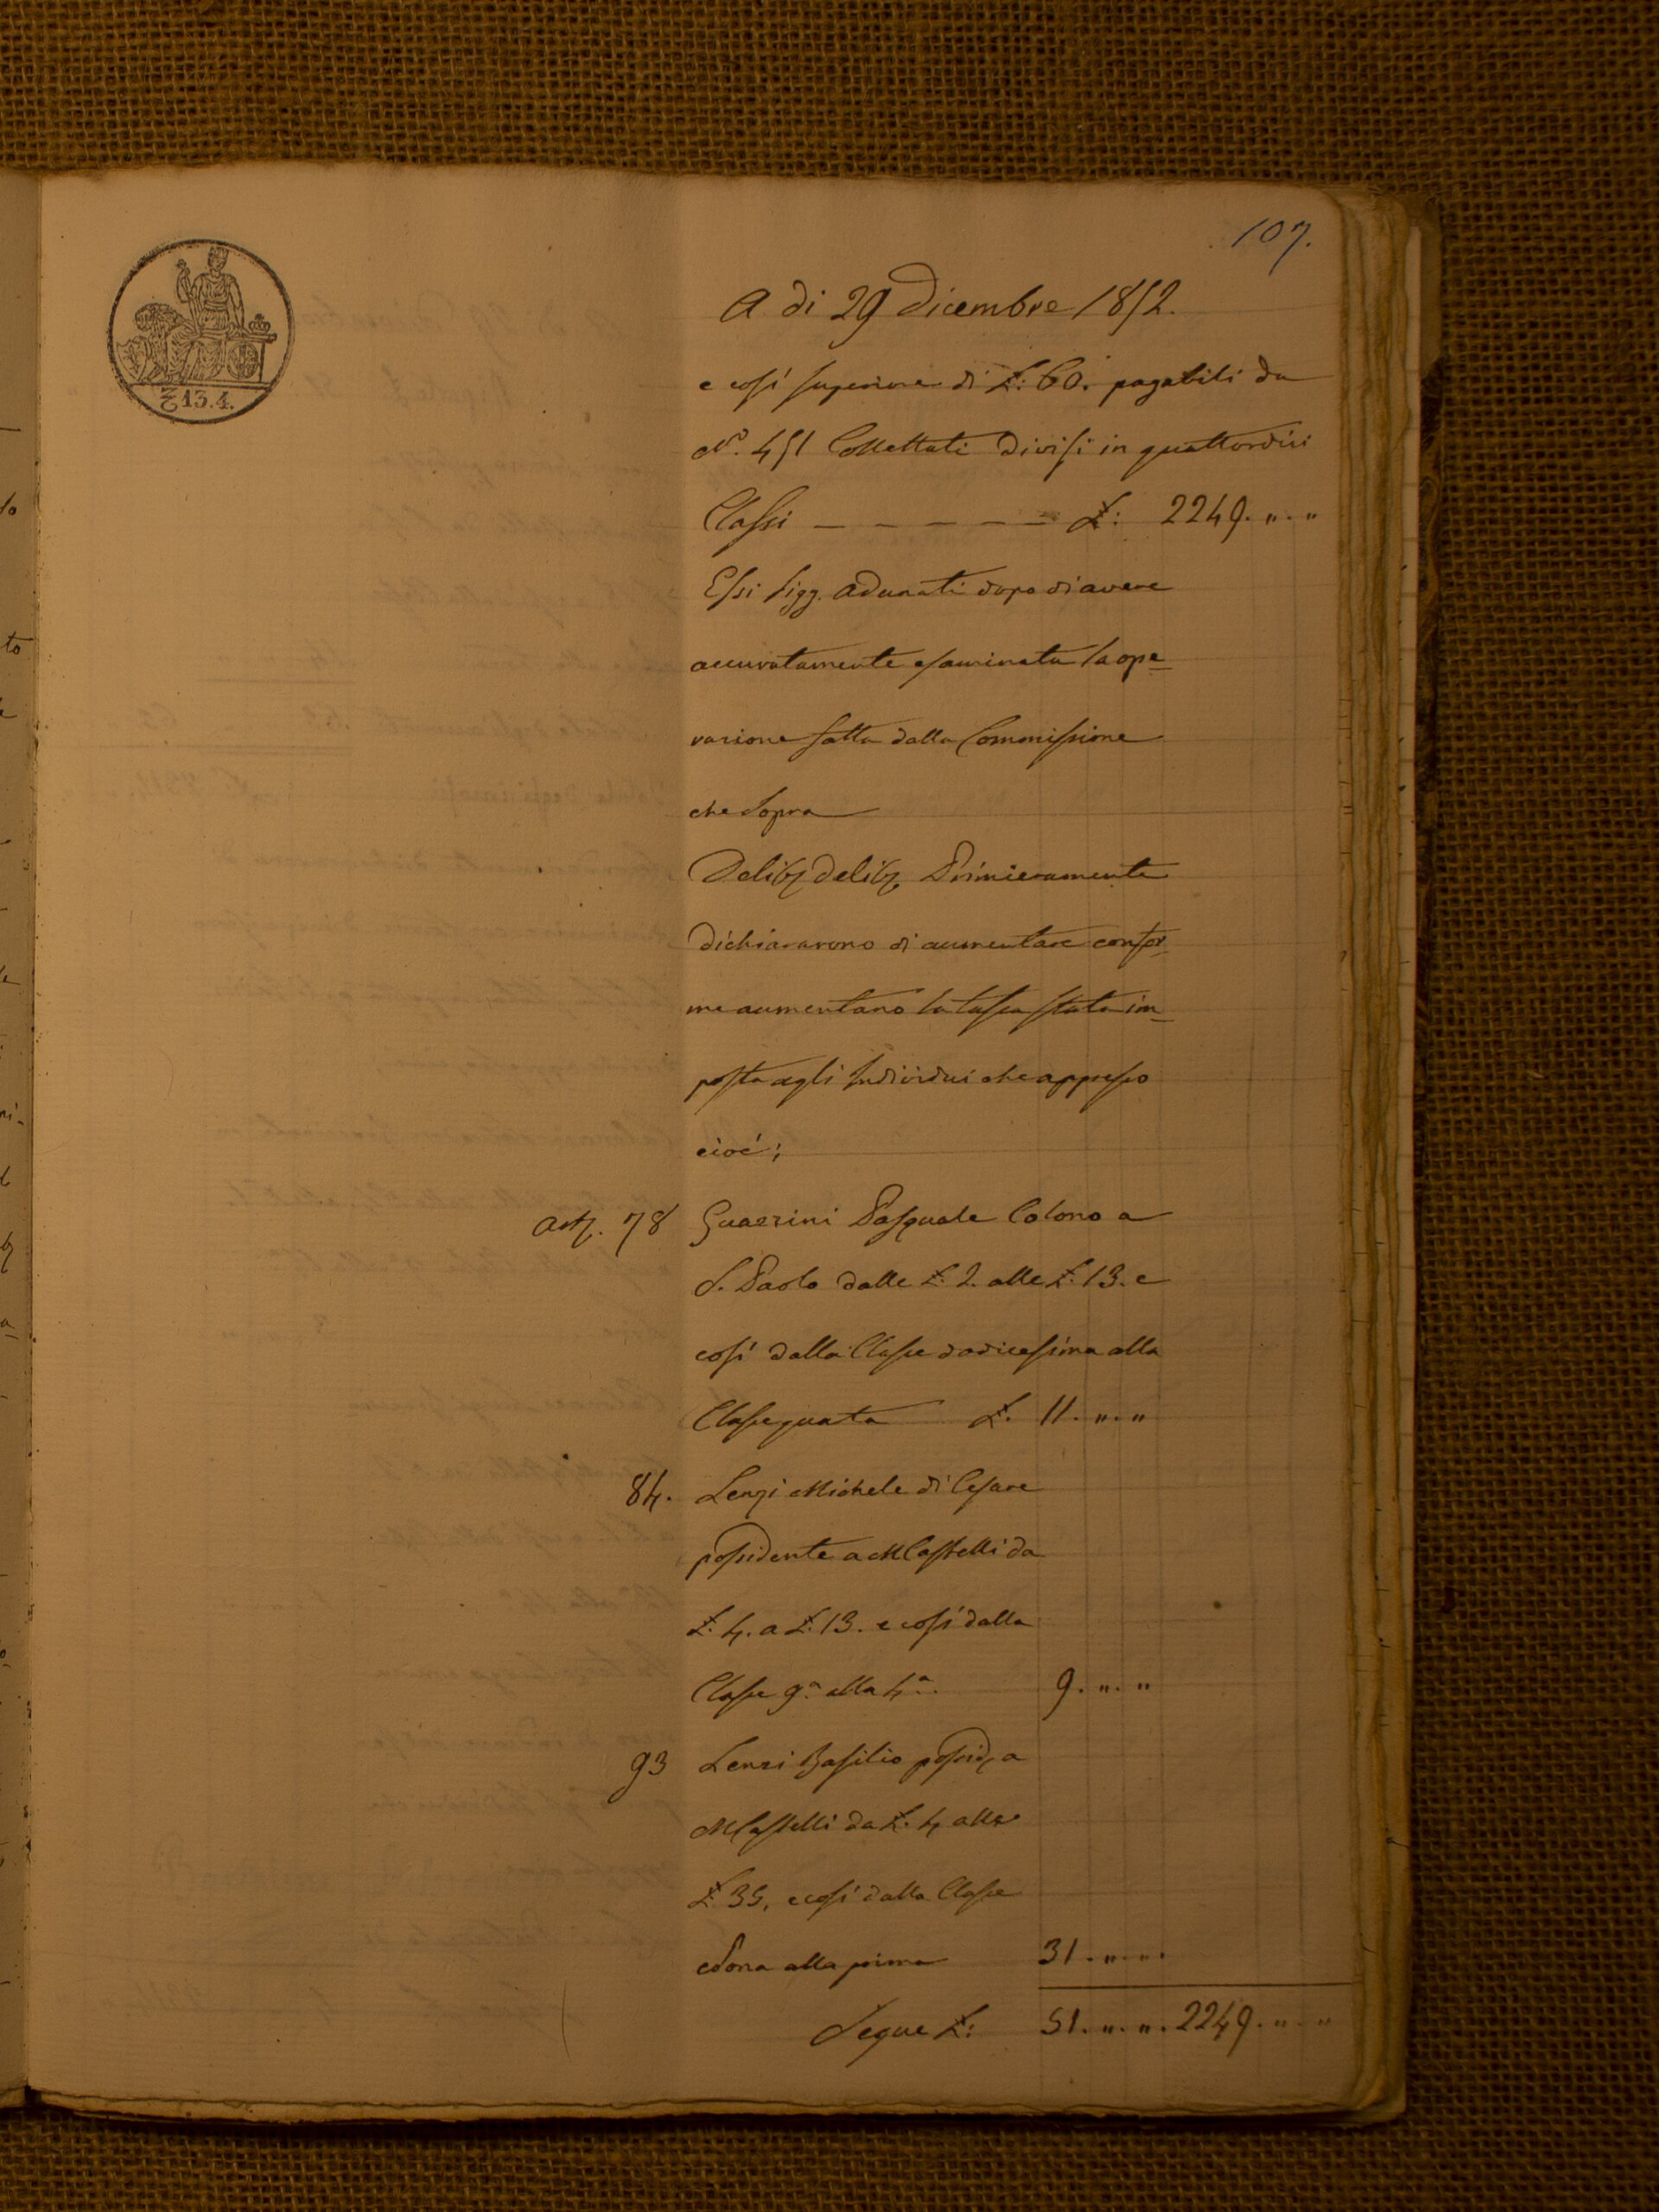 107.
A di 29 Dicembre 1852.
e così superiore di £: 60. pagabili da
N.° 451 Collettati Divisi in quattordici
Classi — — — — — — £: 2249. „. „
Essi Sigg. Adunati dopo di avere
accuratamente esaminata la ope
razione fatta dalla Commissione
che Sopra
Delib. Delib. Primieramente
dichiararono di aumentare confor
me aumentano la tassa stata im
posta agli Individui che appresso
cioè;
Art. 78 Guazzini Pasquale Colono a
S. Paolo dalle £: 2. alle £: 13. e
così dalla Classe dodicesima alla
Classe quarta £. 11. „. „
84. Lenzi Michele di Cesare
possidente a MCastelli da
£: 4. a £: 13. e così dalla
Classe 9.a alla 4.a. 9. „. „
93 Lenzi Basilio possid. a
MCastelli da £: 4 alle
£: 35, e così dalla Classe
Nona alla prima 31. „. „.
Segue £: 51. „. „. 2249. „. „
13.4.